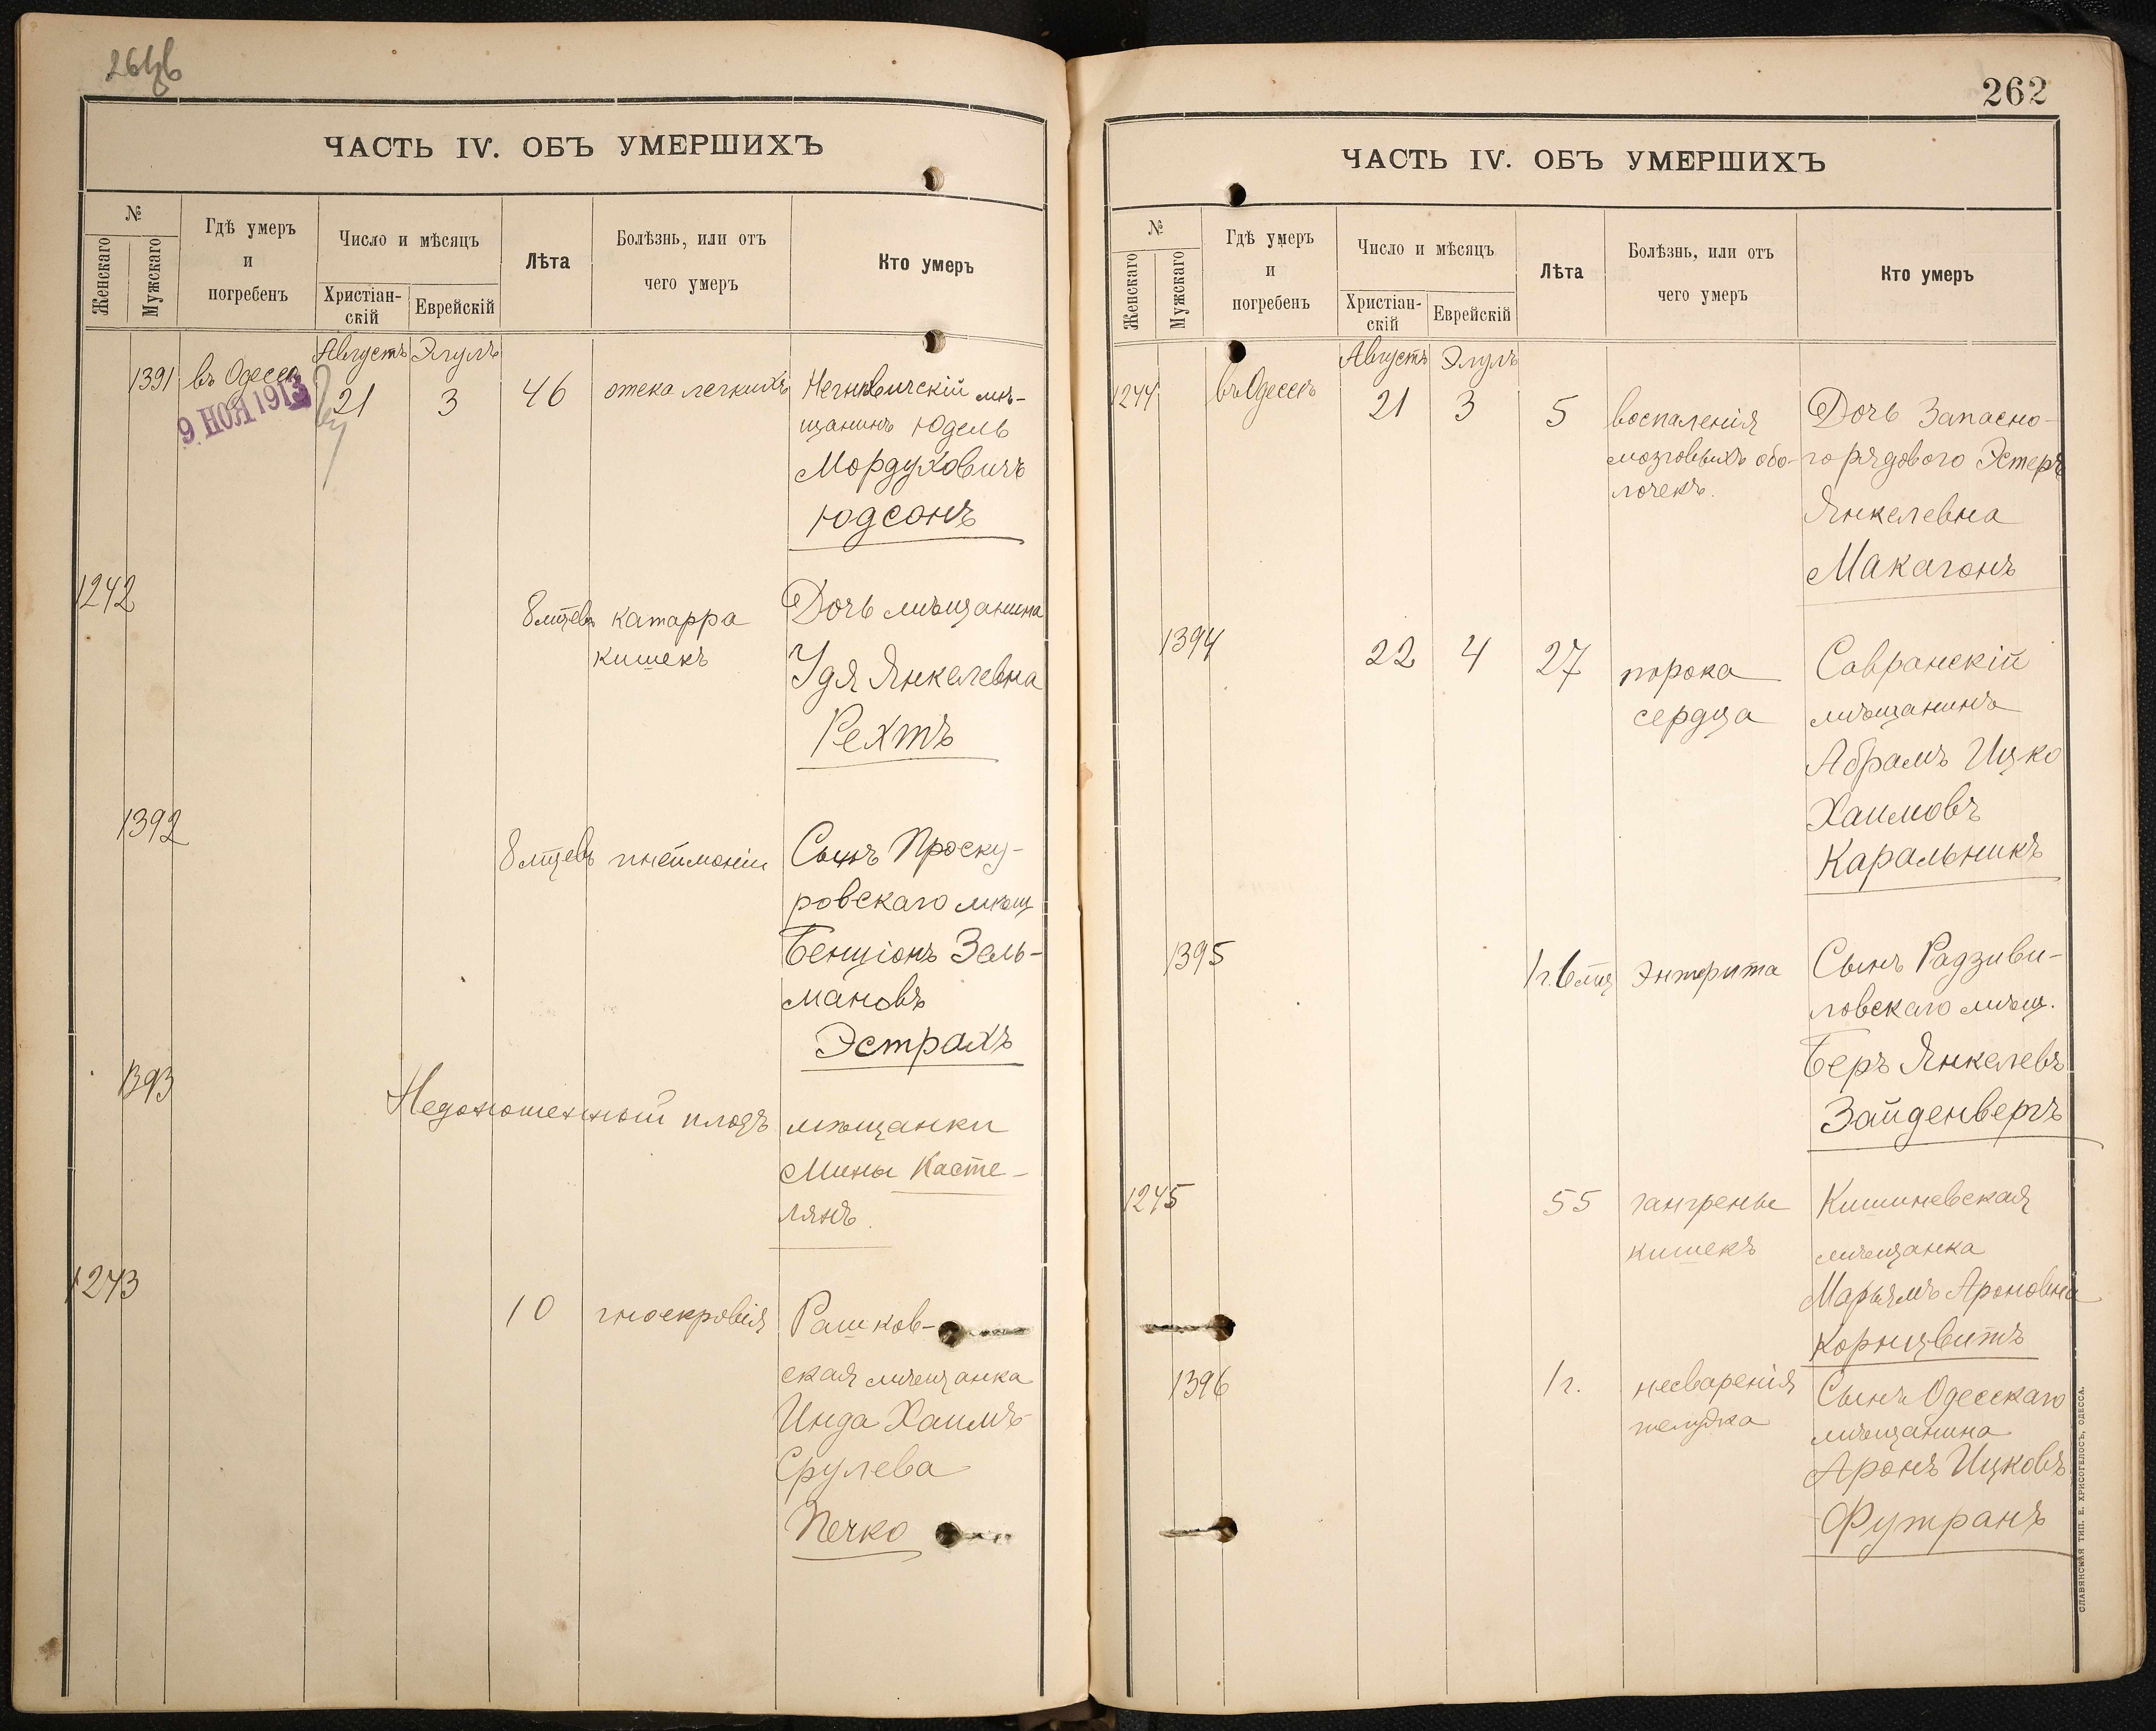 ЧАСТЬ IV. ОБЪ УМЕРШИХЪ
№
Женскаго
Мужскаго
Гдѣ умеръ
и
погребенъ
Число и мѣсяцъ
Христіан-
скій
Еврейскій
Лѣта
Болѣзнь, или отъ
чего умеръ
Кто умеръ
Августъ Элулъ
1391 въ Одессѣ 21 3 46 отека легкихъ
9 НОЯ 1913
мѣ-
щанинъ Юдель
Мордуховичъ
Юдсонъ
1242 8 мцевъ катарра
кишекъ
Дочь мѣщанина
Удя Янкелевна
Рехтъ
1392 8 мцевъ пнеймоніи
Сынъ Проску-
ровскаго мѣщ
Бенціонъ Зель-
мановъ
Эстрахъ
1393 Недоношенный плодъ
мѣщанки
Мины Касте-
лянъ.
1243 10 гноекровія
Рашков-
ская мѣщанка
Инда Хаимъ-
Срулева
Печко
262
ЧАСТЬ IV. ОБЪ УМЕРШИХЪ
№
Женскаго
Мужскаго
Гдѣ умеръ
и
погребенъ
Число и мѣсяцъ
Христіан-
скій
Еврейскій
Лѣта
Болѣзнь, или отъ
чего умеръ
Кто умеръ
Августъ Элулъ
1244 въ Одессѣ 21 3 5 воспаленія
мозговыхъ обо-
лочекъ.
Дочь Запасно-
го рядового Эстеръ
Янкелевна
Макагонъ
1394 22 4 27 порока
сердца
Савранскій
мѣщанинъ
Абрамъ Ицко
Хаимовъ
Каральникъ
1395 1 г. 6 мц энтерита
Сынъ Радзиви-
ловскаго мѣщ.
Беръ Янкелевъ
Зайденвергъ
1245 55 гангрены
кишекъ
Кишиневская
мѣщанка
Марьямъ Ароновна
Корнцвитъ
1396 1 г. несваренія
желудка
Сынъ Одесскаго
мѣщанина
Аронъ Ицковъ
Футранъ
СЛАВЯНСКАЯ ТИП. Е. ХРИСОГЕЛОСЪ, ОДЕССА.